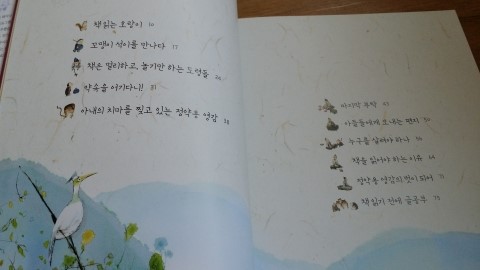 책 읽는 호랑이 10
꼬맹이 석이를 만나다 17
책은 멀리하고, 놀기만 하는 도령들
약속을 어기다니!
아내의 치마를 찢고 있는 정약용 영감
마지막 부탁
아들들에게 보내는 편지
누구를 살려야 하나
책을 읽어야 하는 이유
정약용 영감의 벗이 되어
책 읽기 전에 글공부